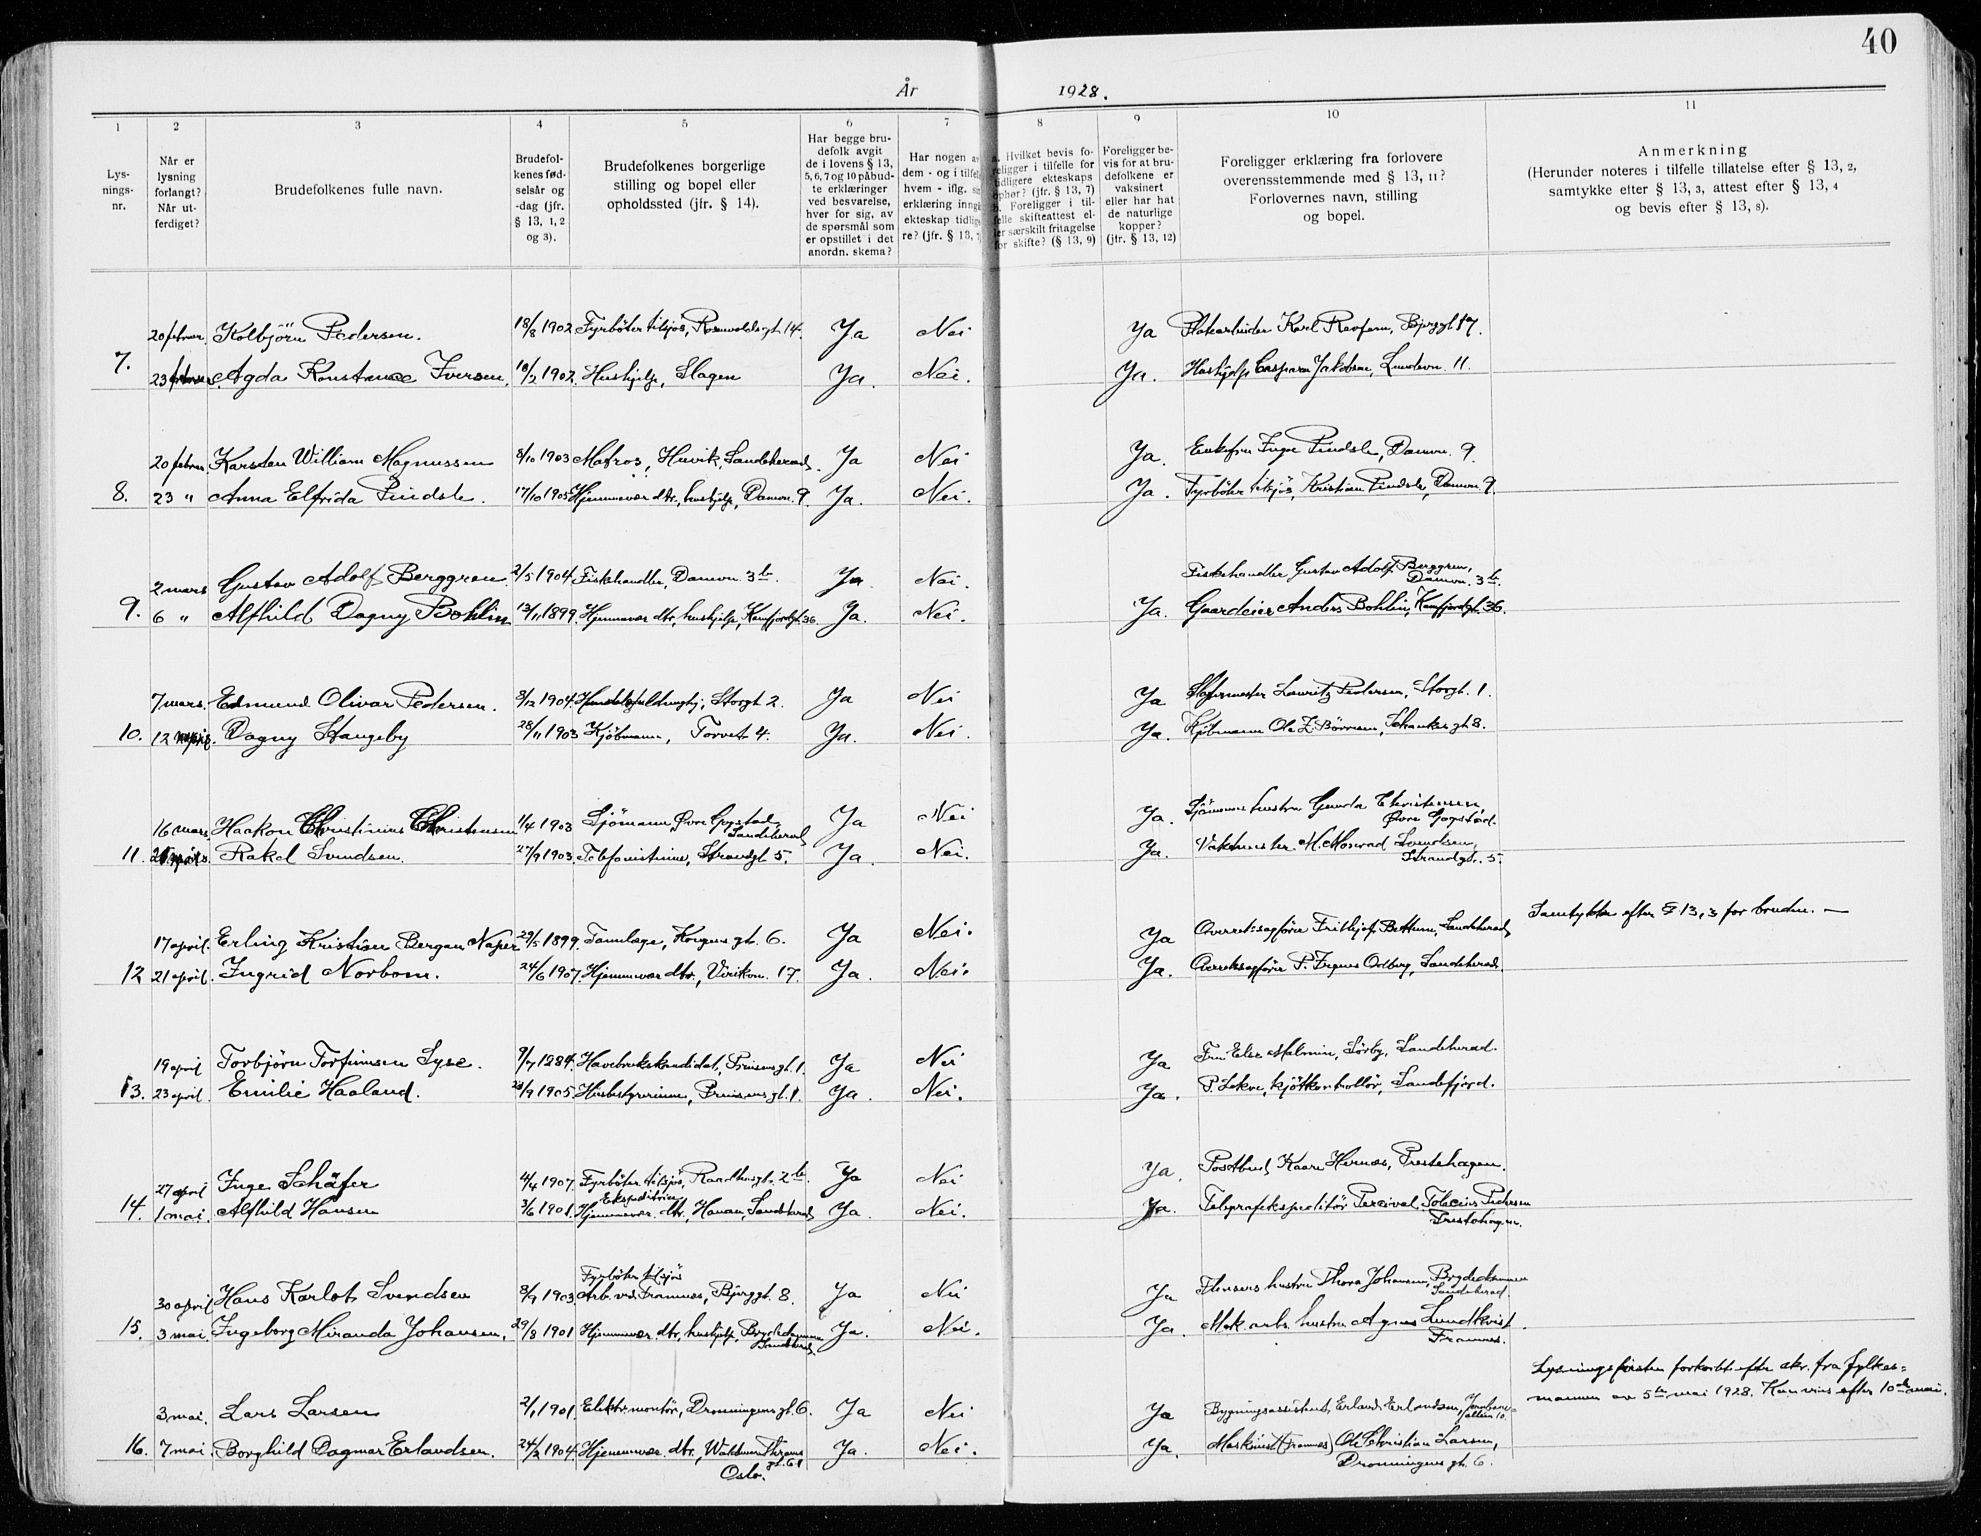 40
År 1928.
1 2 3 4 5 6 7 8 9 10 11
Lys-
nings-
nr.
Når er
lysning
forlangt?
Når ut-
ferdiget?
Brudefolkenes fulle navn.
Brudefol-
kenes fød-
selsår og
-dag (jfr.
§ 13, 1, 2
og 3).
Brudefolkenes borgerlige
stilling og bopel eller
opholdssted (jfr. § 14).
Har begge bru-
defolk avgit
de i lovens § 13,
5, 6, 7 og 10 påbud-
te erklæringer
ved besvarelse,
hver for sig, av
de spørsmål som
er opstillet i det
anordn. skema?
Har nogen av
dem - og i tilfelle
hvem - iflg. sin
erklæring inngå
ekteskap tidlige
re? (jfr. § 13, 7
a. Hvilket bevis fo-
religger i tilfelle for
tidligere ekteskaps
ophør? (jfr. § 13, 7)
b. Foreligger i til-
felle skifteattest el-
ler særskilt fritagelse
for skifte? (§ 13, 9)
Foreligger be-
vis for at bru-
defolkene er
vaksinert
eller har hat
de naturlige
kopper?
(jfr. § 13, 12)
Foreligger erklæring fra forlovere
overensstemmende med § 13, 11?
Forlovernes navn, stilling
og bopel.
Anmerkning
(Herunder noteres i tilfelle tillatelse efter § 13, 2,
samtykke efter § 13, 3, attest efter § 13, 4
og bevis efter § 13, 8).
20 februar. Kolbjörn Pedersen. 18/8 1902 Fyrböter tilsjös, Rosenvoldsgt. 14. Ja Nei Ja Karl Revfem, Bjerggt. 17.
7. 23 februar. Agda Konstance Iversen. 18/2 1902. Hushjelp, Slagen Ja. Nei. Ja. Hushjelp Caspara Jakobsen, Lundevn. 11.
20 februar. Karsten William Magnussen 8/10 1903 Matros, Huvik, Sandeherad. Ja Nei Ja. Enkefru Inga Pindsle, Damvn. 9.
8. 23 " Anna Elfrida Pindsle. 17/10 1905 Hjemmevær. dtr., hushjelp, Damvn. 9. Ja. Nei. Ja. Fyrböter tilsjös, Kristian Pindsle, Damvn. 9.
2 mars Gustav Adolf Berggren 2/5 1904. Fiskehandler, Damvn. 3 b. Ja. Nei. Fiskehandler Gustav Adolf Berggren,
Damvn. 3 b.
9. 6 " Alfhild Dagny Bohlin 13/11 1899. Hjemmevær. dtr., hushjelp, Kamfjordgt. 36. Ja. Nei. Ja. Gaardeier Anders Bohlin, Kamfjordgt. 36.
7 mars. Edmund Olivar Pedersen. 3/12 1904. Storgt. 2. Ja Nei Ja Lauritz Pedersen, Storgt. 1.
10. 12 Dagny Stangeby 28/11 1903 Kjöbmann, Torvet 4. Ja. Nei. Ja. Kjöbmann Ole Z. Börresen, Schankes gt. 8.
16 mars. Haakon Christinius Christensen 1/4 1903 Sjömann, Övre Gogstad
Sandeherad Ja Nei Ja. Sjömanns hustru Gunda Christensen,
Övre Gogstad.
11. Rakel Svendsen. 27/9 1903. Telefonistinne, Strandgt. 5. Ja. Nei. Ja. Vaktmester M. Monrad Svendsen,
Strandgt. 5.
Samtykke efter § 13, 3 for bruden. —
17 april. Erling Kristian Bergan Naper 29/5 1899. Tannlæge, Kongens gt. 6. Ja Nei. Ja Overretssagförer Frithjof Bettum, Sandeherad,
12 21 april. Ingrid Norbom. 24/6 1907. Hjemmevær. dtr., Virikvn. 17. Ja. Nei. Ja. Overretssagförer P. Odberg, Sandeherad.
19 april Torbjörn Torfinnsen Lyse. 9/7 1884. Havebrukskandidat, Prinsensgt. 1. Ja Nei Ja Fru Else Malmin, Sörby, Sandeherad.
13. 23 april Emilie Haaland. 28/9 1905 Husbestyrerinne, Prinsens gt. 1. Ja. Nei. Ja. P. Lekve, kjöttkontrollör, Sandefjord.
27 april Inge Schäfer 4/4 1907. Fyrböter tilsjös, Raadhusgt. 2 b. Ja Nei Ja. Postbud Kaare Hernæs, Prestehagen.
14. 1 mai. Alfhild Hansen 3/6 1901. Ekspeditrise
Hjemmevær. dtr., Hauan, Sandeherad Ja. Nei. Ja. Telegrafekspeditör Percival Pedersen
Prestehagen.
30 april Hans Karlot Svendsen 3/9 1903. Fyrböter tilsjös
Arb. ved Framnæs, Bjerggt. 8. Ja Nei Ja Flensers hustru Thora Johansen, Brydedammen
Sandeherad.
15. 3 mai. Ingeborg Miranda Johansen, 29/8 1901 Hjemmevær. dtr., hushjelp, Brydedammen
Sandeherad. Ja. Nei. Ja. Mek. arb. hustru Agnes Lundkvist
Framnæs.
Lysningsfristen forkortet efter skr. fra fylkes=
mannen av 5te mai 1928. Kan vies efter 10de mai.
3 mai. Lars Larsen 2/1 1901. Elektr. montör, Dronningens gt. 6. Ja Nei Ja Bygningsassistent, Erland Erlandsen, Jernbane=
alleen 10.
16. 7 mai Borghild Dagmar Erlandsen. 24/2 1904. Hjemmevær. dtr., Thranes
gt. 61
Oslo. Ja. Nei. Ja. Maskinist (Framnæs) Ole Christian Larsen,
Dronningens gt. 6.